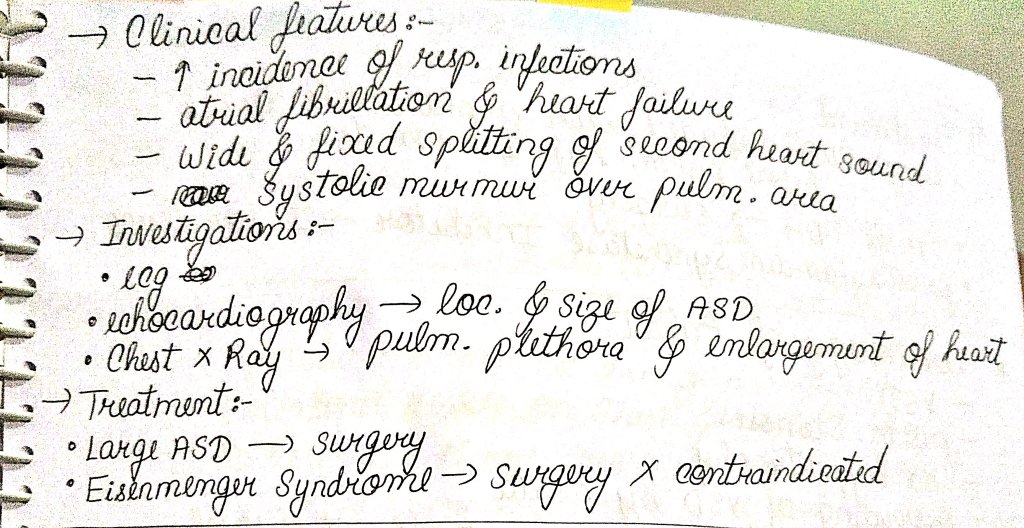 → Clinical features:-
- ↑ incidence of resp. infections
- atrial fibrillation & heart failure
- Wide & fixed splitting of second heart sound
- systolic murmur over pulm. area
→ Investigations:-
• ecg
• echocardiography → loc. & size of ASD
• Chest X Ray → pulm. plethora & enlargement of heart
→ Treatment:-
• Large ASD → surgery
• Eisenmenger Syndrome → surgery X contraindicated